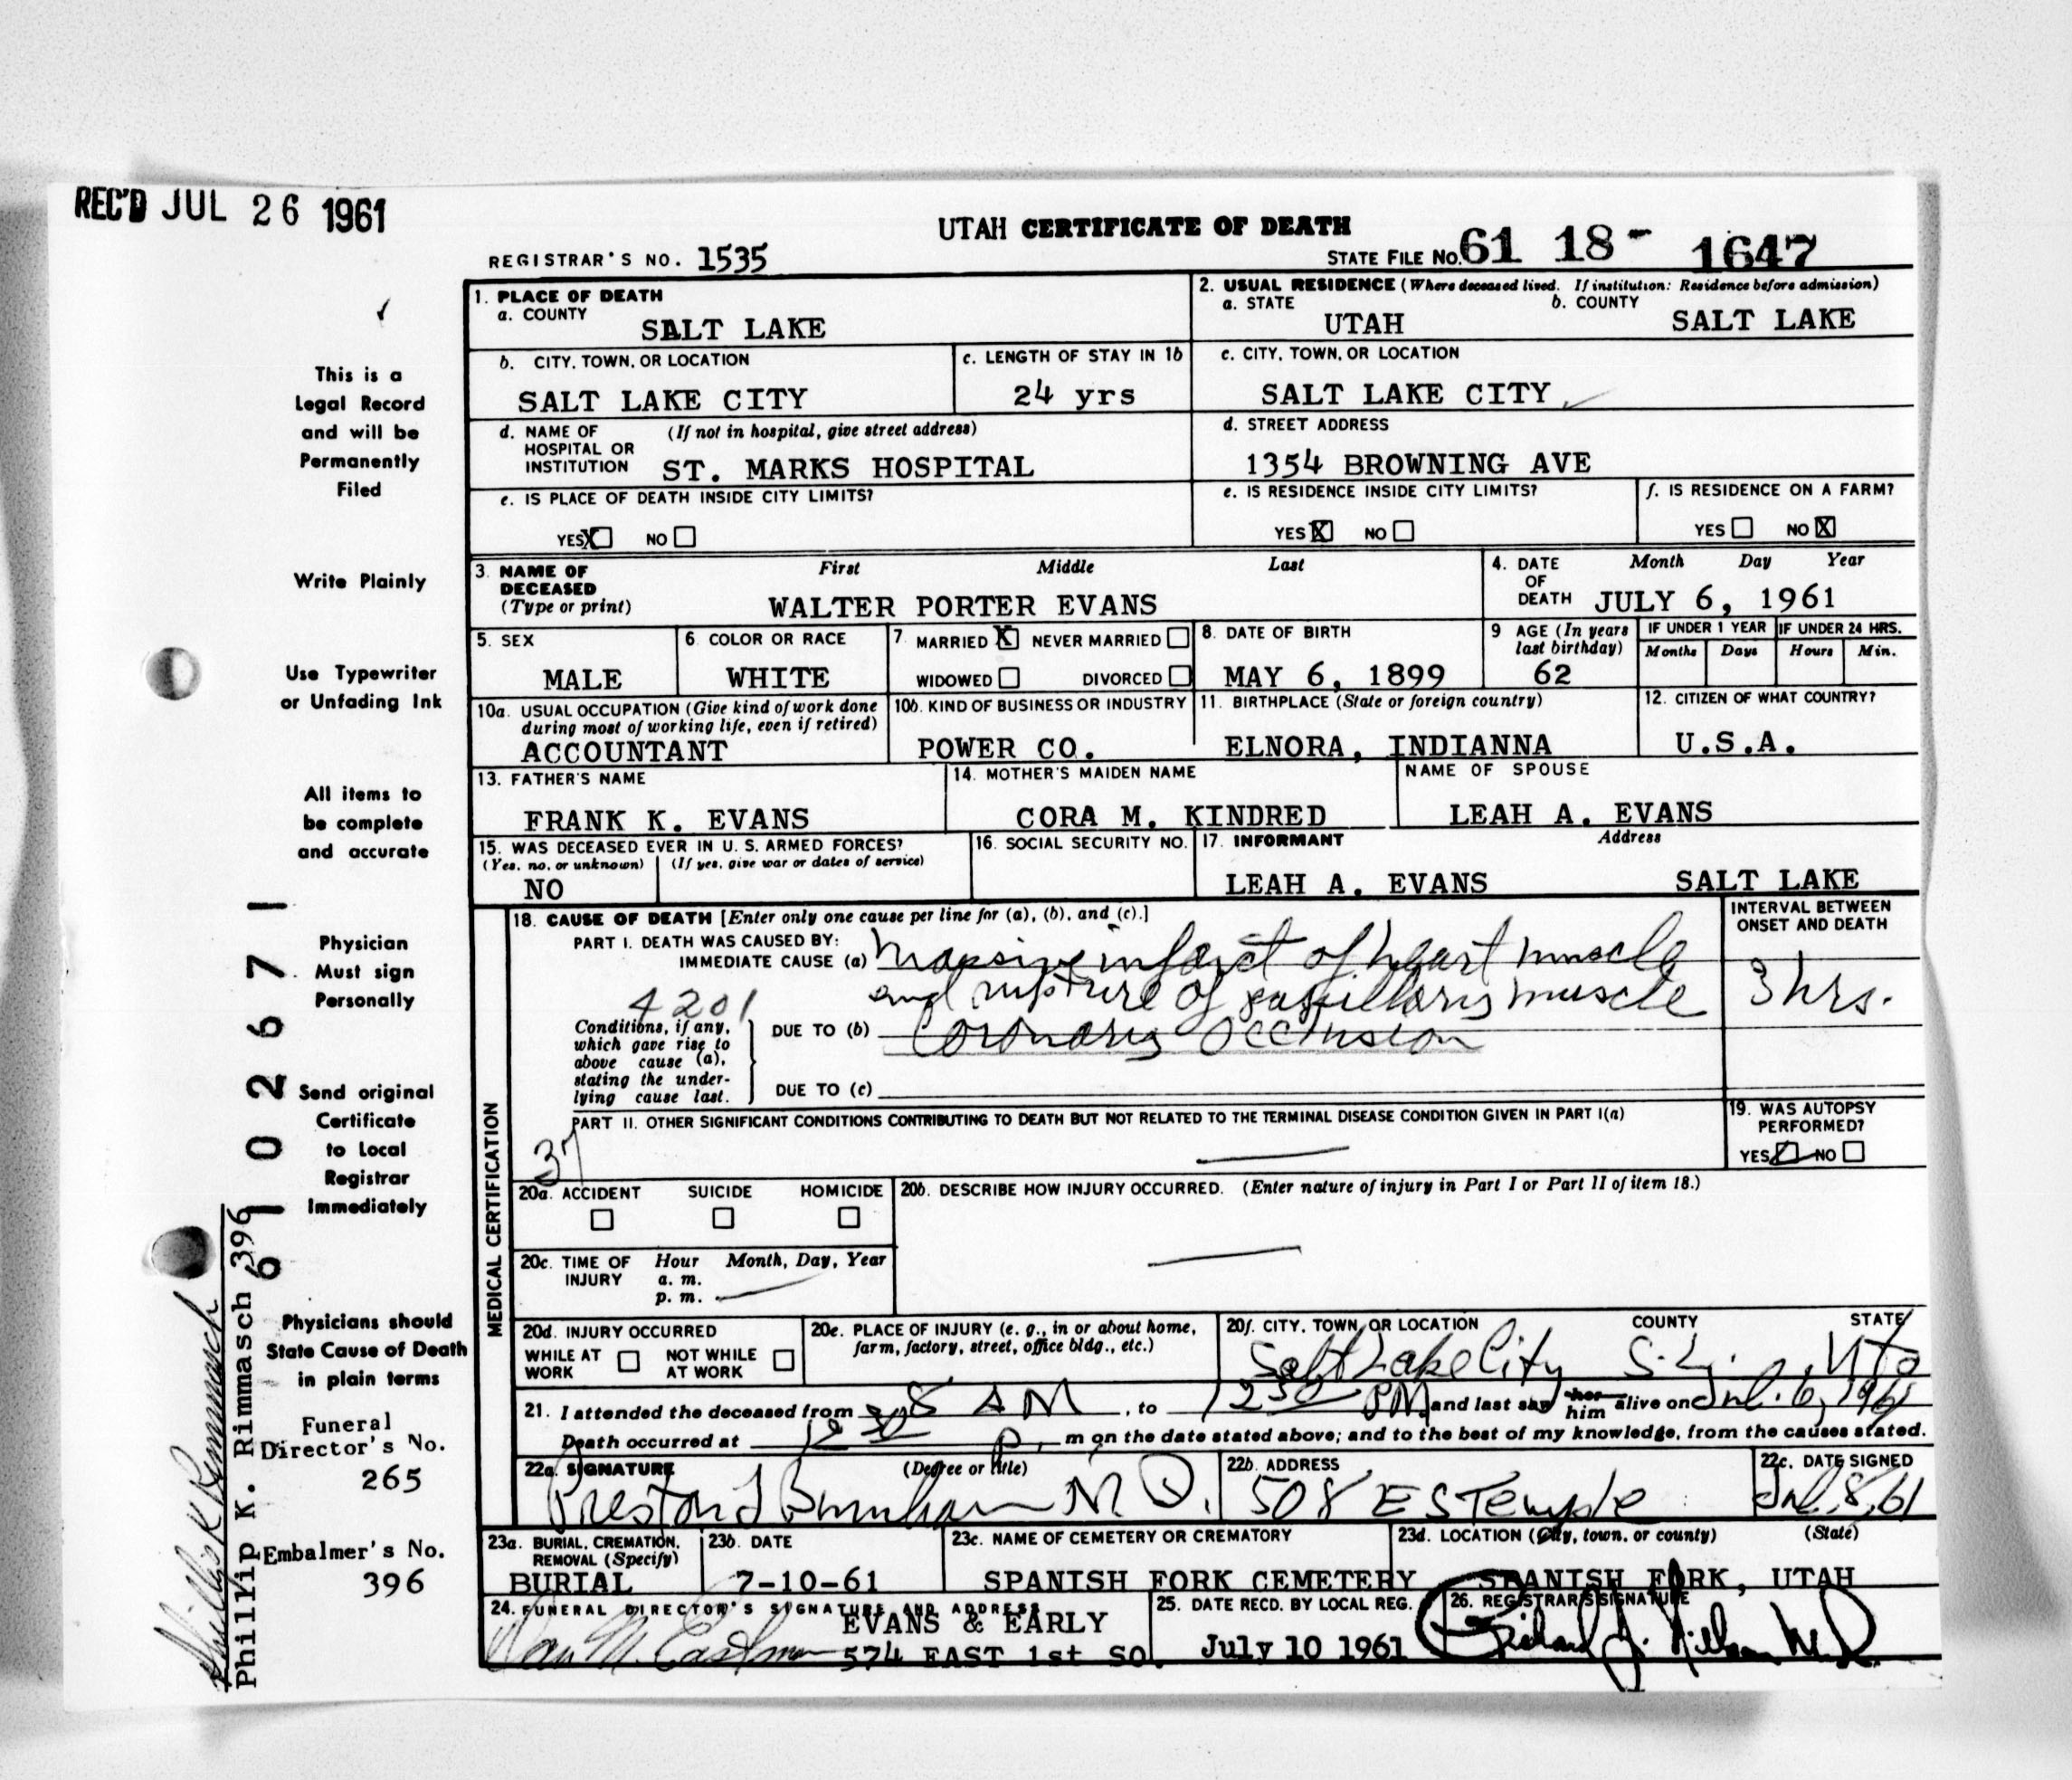 REC'D JUL 26 1961
UTAH CERTIFICATE OF DEATH
REGISTRAR'S NO. 1535
STATE FILE NO. 61 18- 1647
1. PLACE OF DEATH
a. COUNTY
SALT LAKE
2. USUAL RESIDENCE (Where deceased lived. If institution: Residence before admission)
a. STATE
UTAH
b. COUNTY
SALT LAKE
b. CITY, TOWN, OR LOCATION
SALT LAKE CITY
c. LENGTH OF STAY IN 1b
24 yrs
c. CITY, TOWN, OR LOCATION
SALT LAKE CITY
d. NAME OF (If not in hospital, give street address)
HOSPITAL OR
INSTITUTION ST. MARKS HOSPITAL
d. STREET ADDRESS
1354 BROWNING AVE
e. IS PLACE OF DEATH INSIDE CITY LIMITS?
YES X NO
e. IS RESIDENCE INSIDE CITY LIMITS?
YES X NO
f. IS RESIDENCE ON A FARM?
YES NO X
3. NAME OF DECEASED (Type or print)
First Middle Last
WALTER PORTER EVANS
4. DATE OF DEATH
Month Day Year
JULY 6, 1961
5. SEX
MALE
6. COLOR OR RACE
WHITE
7. MARRIED X NEVER MARRIED
WIDOWED DIVORCED
8. DATE OF BIRTH
MAY 6, 1899
9 AGE (In years last birthday)
62
IF UNDER 1 YEAR
Months Days
IF UNDER 24 HRS.
Hours Min.
10a. USUAL OCCUPATION (Give kind of work done
during most of working life, even if retired)
ACCOUNTANT
10b. KIND OF BUSINESS OR INDUSTRY
POWER CO.
11. BIRTHPLACE (State or foreign country)
ELNORA, INDIANNA
12. CITIZEN OF WHAT COUNTRY?
U.S.A.
13. FATHER'S NAME
FRANK K. EVANS
14. MOTHER'S MAIDEN NAME
CORA M. KINDRED
NAME OF SPOUSE
LEAH A. EVANS
15. WAS DECEASED EVER IN U. S. ARMED FORCES?
(Yes, no, or unknown) (If yes, give war or dates of service)
NO
16. SOCIAL SECURITY NO.
17. INFORMANT Address
LEAH A. EVANS SALT LAKE
MEDICAL CERTIFICATION
18. CAUSE OF DEATH [Enter only one cause per line for (a), (b), and (c).]
INTERVAL BETWEEN
ONSET AND DEATH
PART I. DEATH WAS CAUSED BY:
IMMEDIATE CAUSE (a) Massive infarct of heart muscle
and rupture of papillary muscle
3 hrs.
4201
Conditions, if any,
which gave rise to
above cause (a),
stating the under-
lying cause last.
DUE TO (b) Coronary Occlusion
DUE TO (c)
PART II. OTHER SIGNIFICANT CONDITIONS CONTRIBUTING TO DEATH BUT NOT RELATED TO THE TERMINAL DISEASE CONDITION GIVEN IN PART I(a)
37
19. WAS AUTOPSY
PERFORMED?
YES NO
20a. ACCIDENT SUICIDE HOMICIDE
20b. DESCRIBE HOW INJURY OCCURRED. (Enter nature of injury in Part I or Part II of item 18.)
20c. TIME OF INJURY
Hour Month, Day, Year
a. m.
p. m.
20d. INJURY OCCURRED
WHILE AT WORK NOT WHILE AT WORK
20e. PLACE OF INJURY (e. g., in or about home,
farm, factory, street, office bldg., etc.)
20f. CITY, TOWN, OR LOCATION COUNTY STATE
Salt Lake City
21. I attended the deceased from 8 AM, to 12 30 PM and last saw her him alive on Jul. 6, 1961
Death occurred at 12 30 p. m on the date stated above; and to the best of my knowledge, from the causes stated.
22a. SIGNATURE (Degree or title)
Preston J Burnham M D.
22b. ADDRESS
508 E S Temple
22c. DATE SIGNED
Jul 8, 61
23a. BURIAL, CREMATION,
REMOVAL (Specify)
BURIAL
23b. DATE
7-10-61
23c. NAME OF CEMETERY OR CREMATORY
SPANISH FORK CEMETERY
23d. LOCATION (City, town, or county) (State)
SPANISH FORK, UTAH
24. FUNERAL DIRECTOR'S SIGNATURE AND ADDRESS
EVANS & EARLY
574 EAST 1st SO.
25. DATE RECD. BY LOCAL REG.
July 10 1961
26. REGISTRAR'S SIGNATURE
This is a
Legal Record
and will be
Permanently
Filed
Write Plainly
Use Typewriter
or Unfading Ink
All items to
be complete
and accurate
Physician
Must sign
Personally
Send original
Certificate
to Local
Registrar
Immediately
Physicians should
State Cause of Death
in plain terms
Funeral
Director's No.
265
Embalmer's No.
396
61 02671
Phillip K. Rimmasch 396
Phillip K Rimmasch